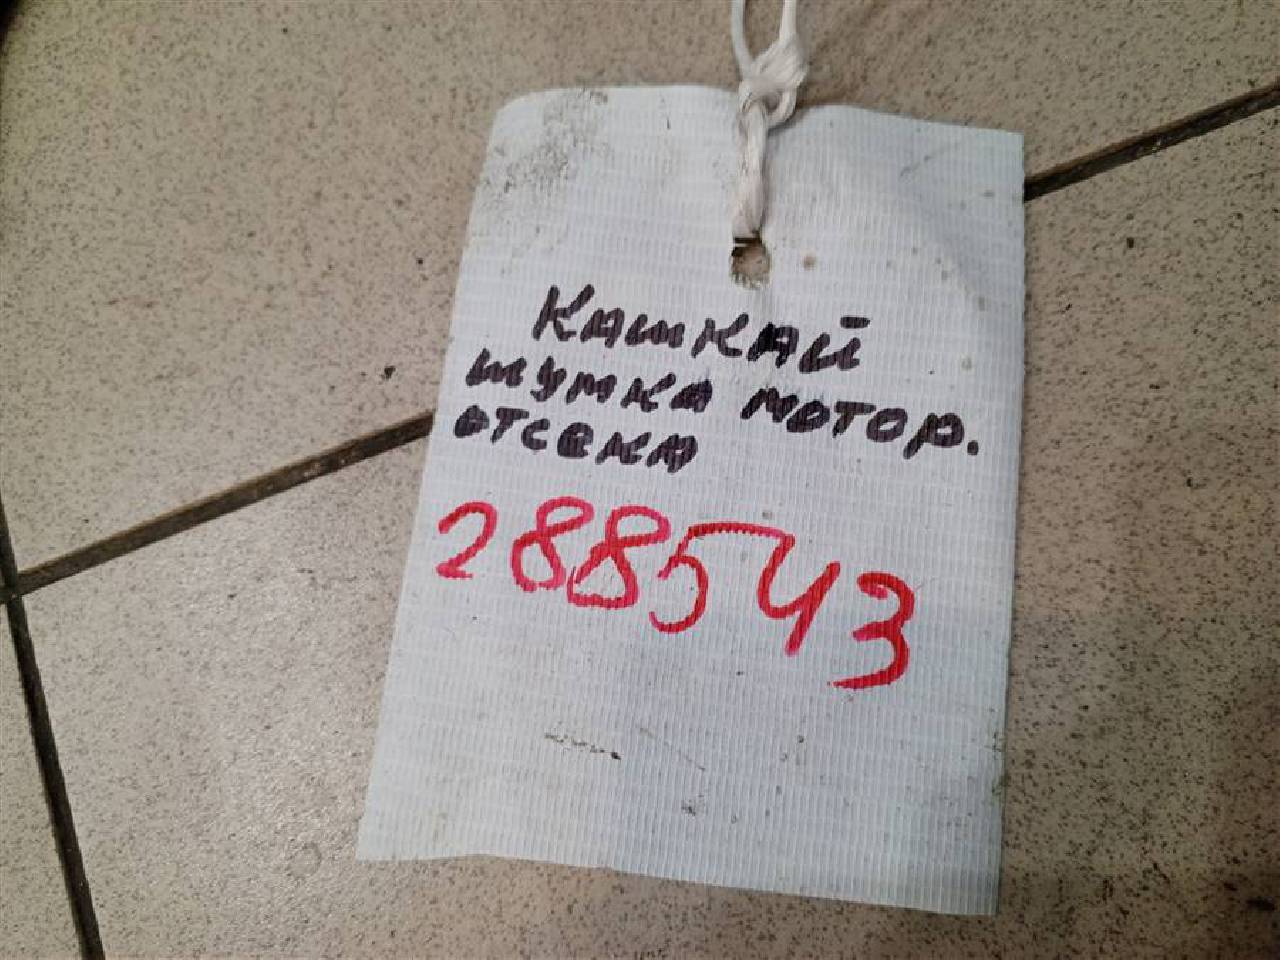 Кашкай
шумка мотор.
отсека
288543